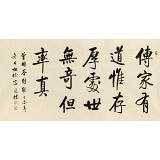 傳家有
道惟存
厚處世
無奇但
率真